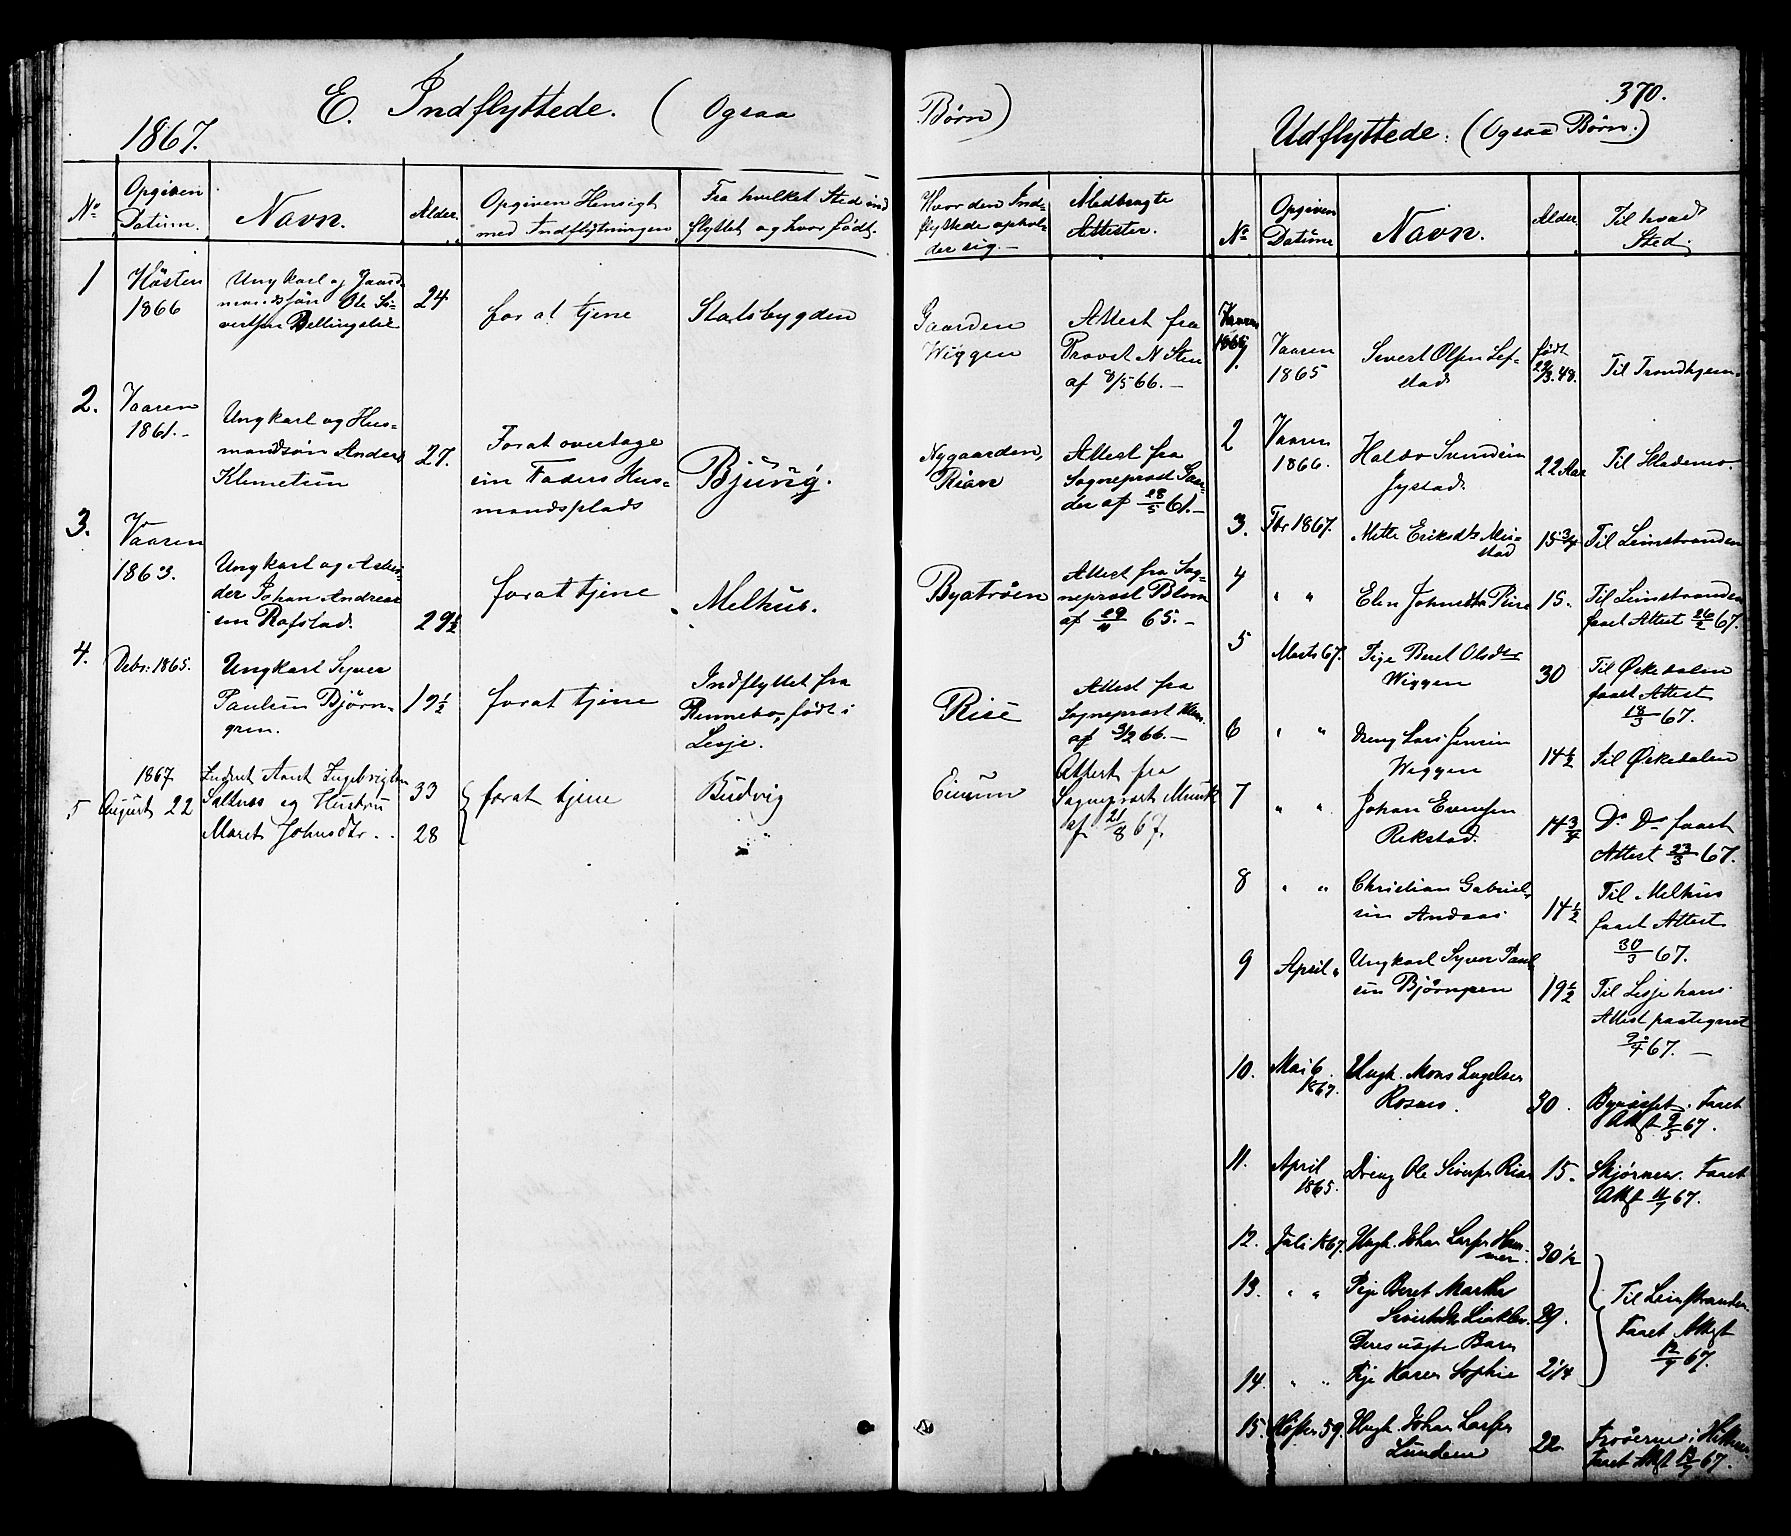 370.
E. Indflyttede. (Ogsaa Børn)
1867.
No
Opgiven Datum.
Navn.
Alder.
Opgiven Hensigt
med Indflytningen
Fra hvilket Sted ind
flyttet og hvor født.
Hvor den Ind-
flyttede ophol-
der sig.
Medbragte
Attester.
1
Høsten
1866
Ungkarl og Gaard
mandssøn Ole Si-
vertsen
24
for at tjene
Stadsbygden
Gaarden
Wiggen
Attest fra
Provst N Sten
af 8/5 66. —
2.
Vaaren
1861. -
Ungkarl og Hus-
mandssøn Anders
Klemetsen
27.
For at overtage
sin Faders Hus-
mandsplads
Bjuvig.
Nygaarden,
Rian
Attest fra
Sogneprest
der af 28/5 61. —
3.
Vaaren
1863.
Ungkarl og
der Johan Andrea
sen Rofstad.
29 1/2
for at tjene
Melhus.
Byatrøen
Attest fra Sog-
neprest Blom
af 29/11 65. —
4.
Debr. 1865.
Ungkarl Syver
Paulsen Bjørn-
gren.
19 1/2
for at tjene
Indflyttet fra
Rennebo, født i
Lesje.
Rise
Attest fra
Sogneprest
af 3/2 66. —
5
1867
August 22
Inderst Arnt Ingebrigtsen
Saltnes og Hustru
Maret Johnsdtr. .
33
28
for at tjene
Budvig
Attest fra
Sogneprest Munk
af 21/8 67.
Udflyttede. (Ogsaa Børn.)
No
Opgiven
Datum
Navn.
Alder
Til hvad
Sted.
1.
Vaaren
1865
Sivert Olsen Lef-
stad
født
23/3. 48.
Til Trondhjem.
2
Vaaren
1866.
Haldo Svendsen
22 Aar
3.
Fbr 1867.
Mette Eriksdtr
stad
15 3/4
Til Leinstranden
4
" "
Elen Johnsdtr Rise
15.
Til Leinstranden
faaet Attest 26/2 67.
5
Marts 67.
Pige Beret Olsdtr
Wiggen
30
Til Ørkedalen
faaet Attest
18/3 67.
6
" "
Dreng Lars Jensen
Wiggen
14 1/2
Til Ørkedalen
7
" "
Johan Evensen
Rekstad.
14 3/4
Do Do faaet
Attest 23/3 67.
8
" "
Christian Gabriel-
sen Andaas
14 1/2
Til Melhus
faaet Attest
30/3 67.
9
April "
Ungkarl Syver Paul-
sen Bjørngren
19 1/2
Til Lesje hans
Attest paategnet
9/4 67. —
10.
Mai 6.
1867.
Ungk. Mons
30.
Byneset. Faaet
Att 9/5 67.
11.
April
1865.
Dreng Ole Siverts Rian
15.
Skjørnes. Faaet
Att 11/7 67.
12.
Juli 1867.
Ungk. Johan Larsen Ham-
mer
30 1/2
13.
" "
Pige Beret Martha
Sivertsdtr
29.
Til Leinstranden.
Faaet Att
12/7 67.
Deres uægte Barn
14.
" "
Pige Karen Sophie
2 1/4
15.
Høsten 59.
Ungk. Johan Larsen
Lundem
22
Frøierne i Hitteren
Faaet Att 12/7 67.